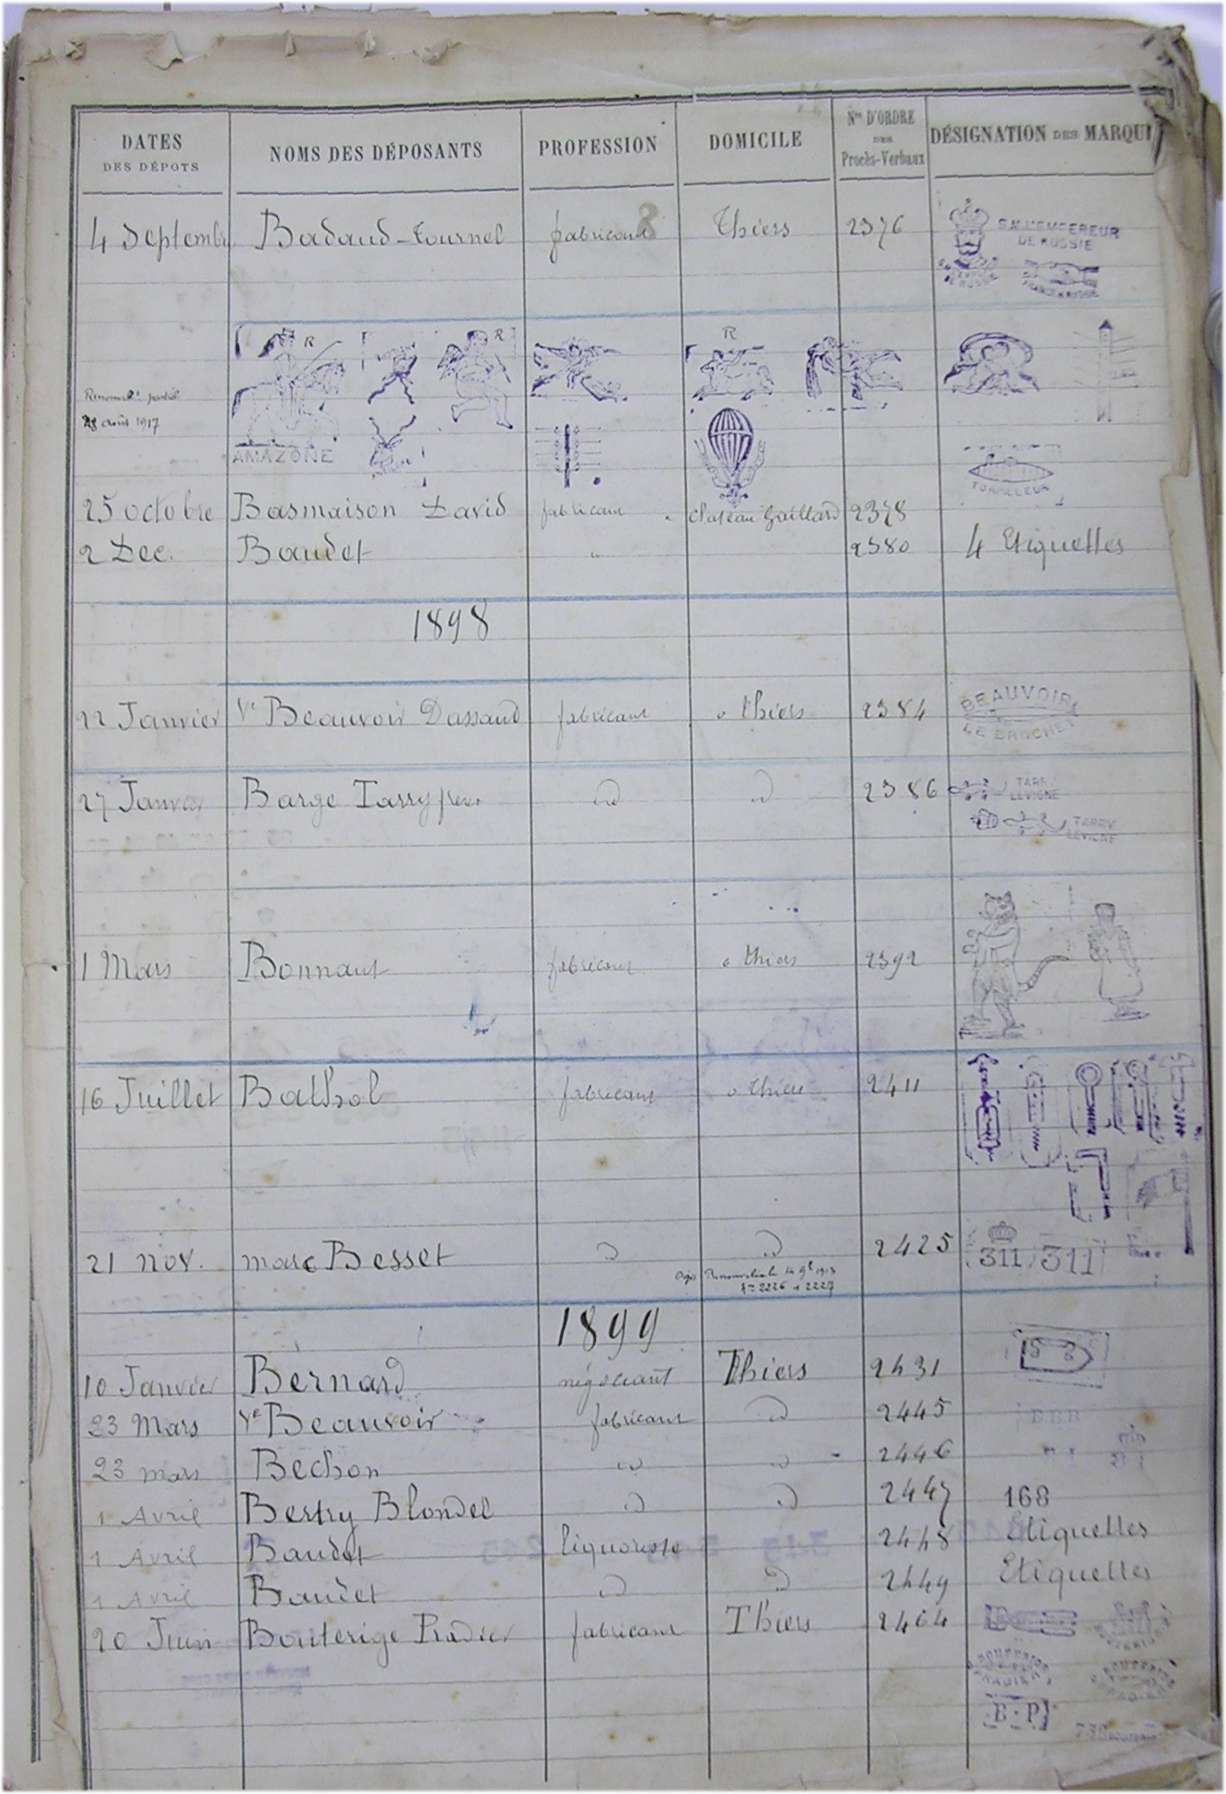 DATES DES DÉPOTS NOMS DES DÉPOSANTS PROFESSION DOMICILE Nos D'ORDRE DES Procès-Verbaux DÉSIGNATION DES MARQU
4 Septembre Badaud-Tournel fabricant 8 Thiers 2376 S.M. L'EMPEREUR DE RUSSIE
R R R
28 août 1917
AMAZONE
25 octobre Basmaison David fabricant Chateau Gaillard 2378
2 Dec. Baudet " 2380 4 Etiquettes
1898
22 Janvier Ve Beauvoir Dassaud fabricant à thiers 2384 BEAUVOIR LE BROCHET
27 Janvier Barge Tarry frères 2386 TARRY LEVIGNE
TARRY LEVIGNE
1 Mars Bonnaut fabricant à thiers 2392
16 Juillet Bathol fabricant à thiers 2411
21 nov. marc Besset 2425 311 311
1913
2226 2227
1899
10 Janvier Bernard négociant Thiers 2431
23 Mars Ve Beauvoir fabricant 2445 BBB
23 mars Bechon 2446
1 Avril Bertry Blondel 2447 168
1 Avril Baudet liquoriste 2448 Etiquettes
1 Avril Baudet 2449 Etiquettes
20 Juin Bouterige Pradier fabricant Thiers 2464
B. P